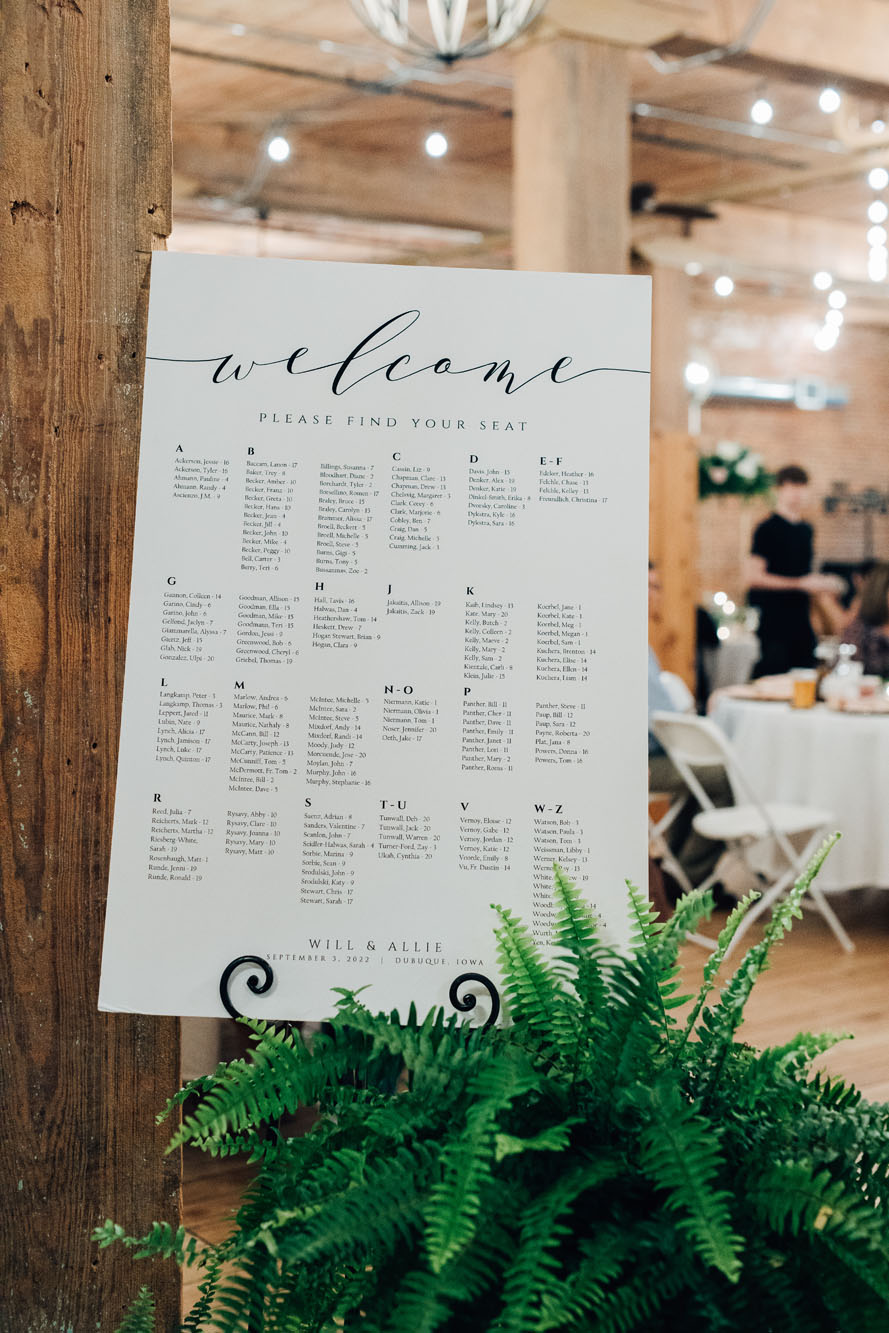 welcome
PLEASE FIND YOUR SEAT
A
Ackerson, Jessie - 16
Ackerson, Tyler - 16
Ahmann, Pauline - 4
Ahmann, Randy - 4
Ascienzo, J.M. - 9
B
Baccam, Lanon - 17
Baker, Trey - 8
Becker, Amber - 10
Becker, Franz - 10
Becker, Greta - 10
Becker, Hans - 10
Becker, Jean - 4
Becker, Jill - 4
Becker, John - 10
Becker, Mike - 4
Becker, Peggy - 10
Bell, Carter - 3
Berry, Teri - 6
Billings, Susanna - 7
Bloodhart, Diane - 2
Borchardt, Tyler - 2
Borsellino, Romen - 17
Braley, Bruce - 15
Braley, Carolyn - 13
Brammer, Alissa - 17
Broell, Beckett - 5
Broell, Michelle - 5
Broell, Steve - 5
Burns, Gigi - 5
Burns, Tony - 5
Bussanmas, Zoe - 2
C
Cassin, Liz - 9
Chapman, Clare - 13
Chapman, Drew - 13
Chelsvig, Margaret - 3
Clark, Corey - 6
Clark, Marjorie - 6
Cobley, Ben - 7
Craig, Dan - 5
Craig, Michelle - 5
Cumming, Jack - 3
D
Davis, John - 15
Denker, Alex - 19
Denker, Katie - 19
Dinkel-Smith, Erika - 8
Dvorsky, Caroline - 3
Dykstra, Kyle - 16
Dykstra, Sara - 16
E-F
Edeker, Heather - 16
Felchle, Chase - 13
Felchle, Kelley - 13
Freundlich, Christina - 17
G
Gaanon, Colleen - 14
Garino, Cindy - 6
Garino, John - 6
Gelfond, Jaclyn - 7
Giammarella, Alyssa - 7
Giertz, Jeff - 15
Glab, Nick - 19
Gonzalez, Ulpi - 20
Goodman, Allison - 15
Goodman, Ella - 15
Goodman, Mike - 15
Goodmann, Teri - 15
Gordon, Jessi - 9
Greenwood, Bob - 6
Greenwood, Cheryl - 6
Griebel, Thomas - 19
H
Hall, Tavis - 16
Halwas, Dan - 4
Heathershaw, Tom - 14
Heskett, Drew - 7
Hogan Stewart, Brian - 9
Hogan, Clara - 9
J
Jakaitis, Allison - 19
Jakaitis, Zack - 19
K
Kaib, Lindsey - 13
Kate, Mary - 20
Kelly, Butch - 2
Kelly, Colleen - 2
Kelly, Maeve - 2
Kelly, Mary - 2
Kelly, Sam - 2
Kienzale, Carli - 8
Klein, Julie - 15
Koerbel, Jane - 1
Koerbel, Kate - 1
Koerbel, Meg - 1
Koerbel, Megan - 1
Koerbel, Sam - 1
Kuchera, Brenton - 14
Kuchera, Elise - 14
Kuchera, Ellen - 14
Kuchera, Liam - 14
L
Langkamp, Peter - 3
Langkamp, Thomas - 3
Leppert, Jared - 11
Lubin, Nate - 9
Lynch, Alicia - 17
Lynch, Jamison - 17
Lynch, Luke - 17
Lynch, Quinton - 17
M
Marlow, Andrea - 6
Marlow, Phil - 6
Maurice, Mark - 8
Maurice, Nathaly - 8
McCann, Bill - 12
McCarty, Joseph - 13
McCarty, Patience - 13
McCunniff, Tom - 5
McDermott, Fr. Tom - 2
McIntee, Bill - 2
McIntee, Dave - 5
McIntee, Michelle - 5
McIntee, Sara - 2
McIntee, Steve - 5
Mixdorf, Andy - 14
Mixdorf, Randi - 14
Moody, Judy - 12
Morcuende, Jose - 20
Moylan, John - 7
Murphy, John - 16
Murphy, Stephanie - 16
N-O
Niermann, Katie - 1
Niermann, Olivia - 1
Niermann, Tom - 1
Noser, Jennifer - 20
Oeth, Jake - 17
P
Panther, Bill - 11
Panther, Cher - 11
Panther, Dave - 11
Panther, Emily - 11
Panther, Janet - 11
Panther, Lori - 11
Panther, Mary - 2
Panther, Roens - 11
Panther, Steve - 11
Paup, Bill - 12
Paup, Sara - 12
Payne, Roberta - 20
Plat, Jana - 8
Powers, Donna - 16
Powers, Tom - 16
R
Reed, Julia - 7
Reicherts, Mark - 12
Reicherts, Martha - 12
Riesberg-White,
Sarah - 19
Rosenbaugh, Matt - 1
Runde, Jenni - 19
Runde, Ronald - 19
Rysavy, Abby - 10
Rysavy, Clare - 10
Rysavy, Joanna - 10
Rysavy, Mary - 10
Rysavy, Matt - 10
S
Saenz, Adrian - 8
Sanders, Valentine - 7
Scanlon, John - 7
Seidler-Halwas, Sarah - 4
Sorbie, Marina - 9
Sorbie, Sean - 9
Srodulski, John - 9
Srodulski, Katy - 9
Stewart, Chris - 17
Stewart, Sarah - 17
T-U
Tunwall, Deb - 20
Tunwall, Jack - 20
Tunwall, Warren - 20
Turner-Ford, Zay - 3
Ukah, Cynthia - 20
V
Vernoy, Eloise - 12
Vernoy, Gabe - 12
Vernoy, Jordan - 12
Vernoy, Katie - 12
Voorde, Emily - 8
Vu, Fr. Dustin - 14
W-Z
Watson, Bob - 3
Watson, Paula - 3
Watson, Tom - 3
Weissman, Libby - 1
Werner, Kelsey - 13
White
White
White
WILL & ALLIE
SEPTEMBER 3, 2022 | DUBUQUE, IOWA